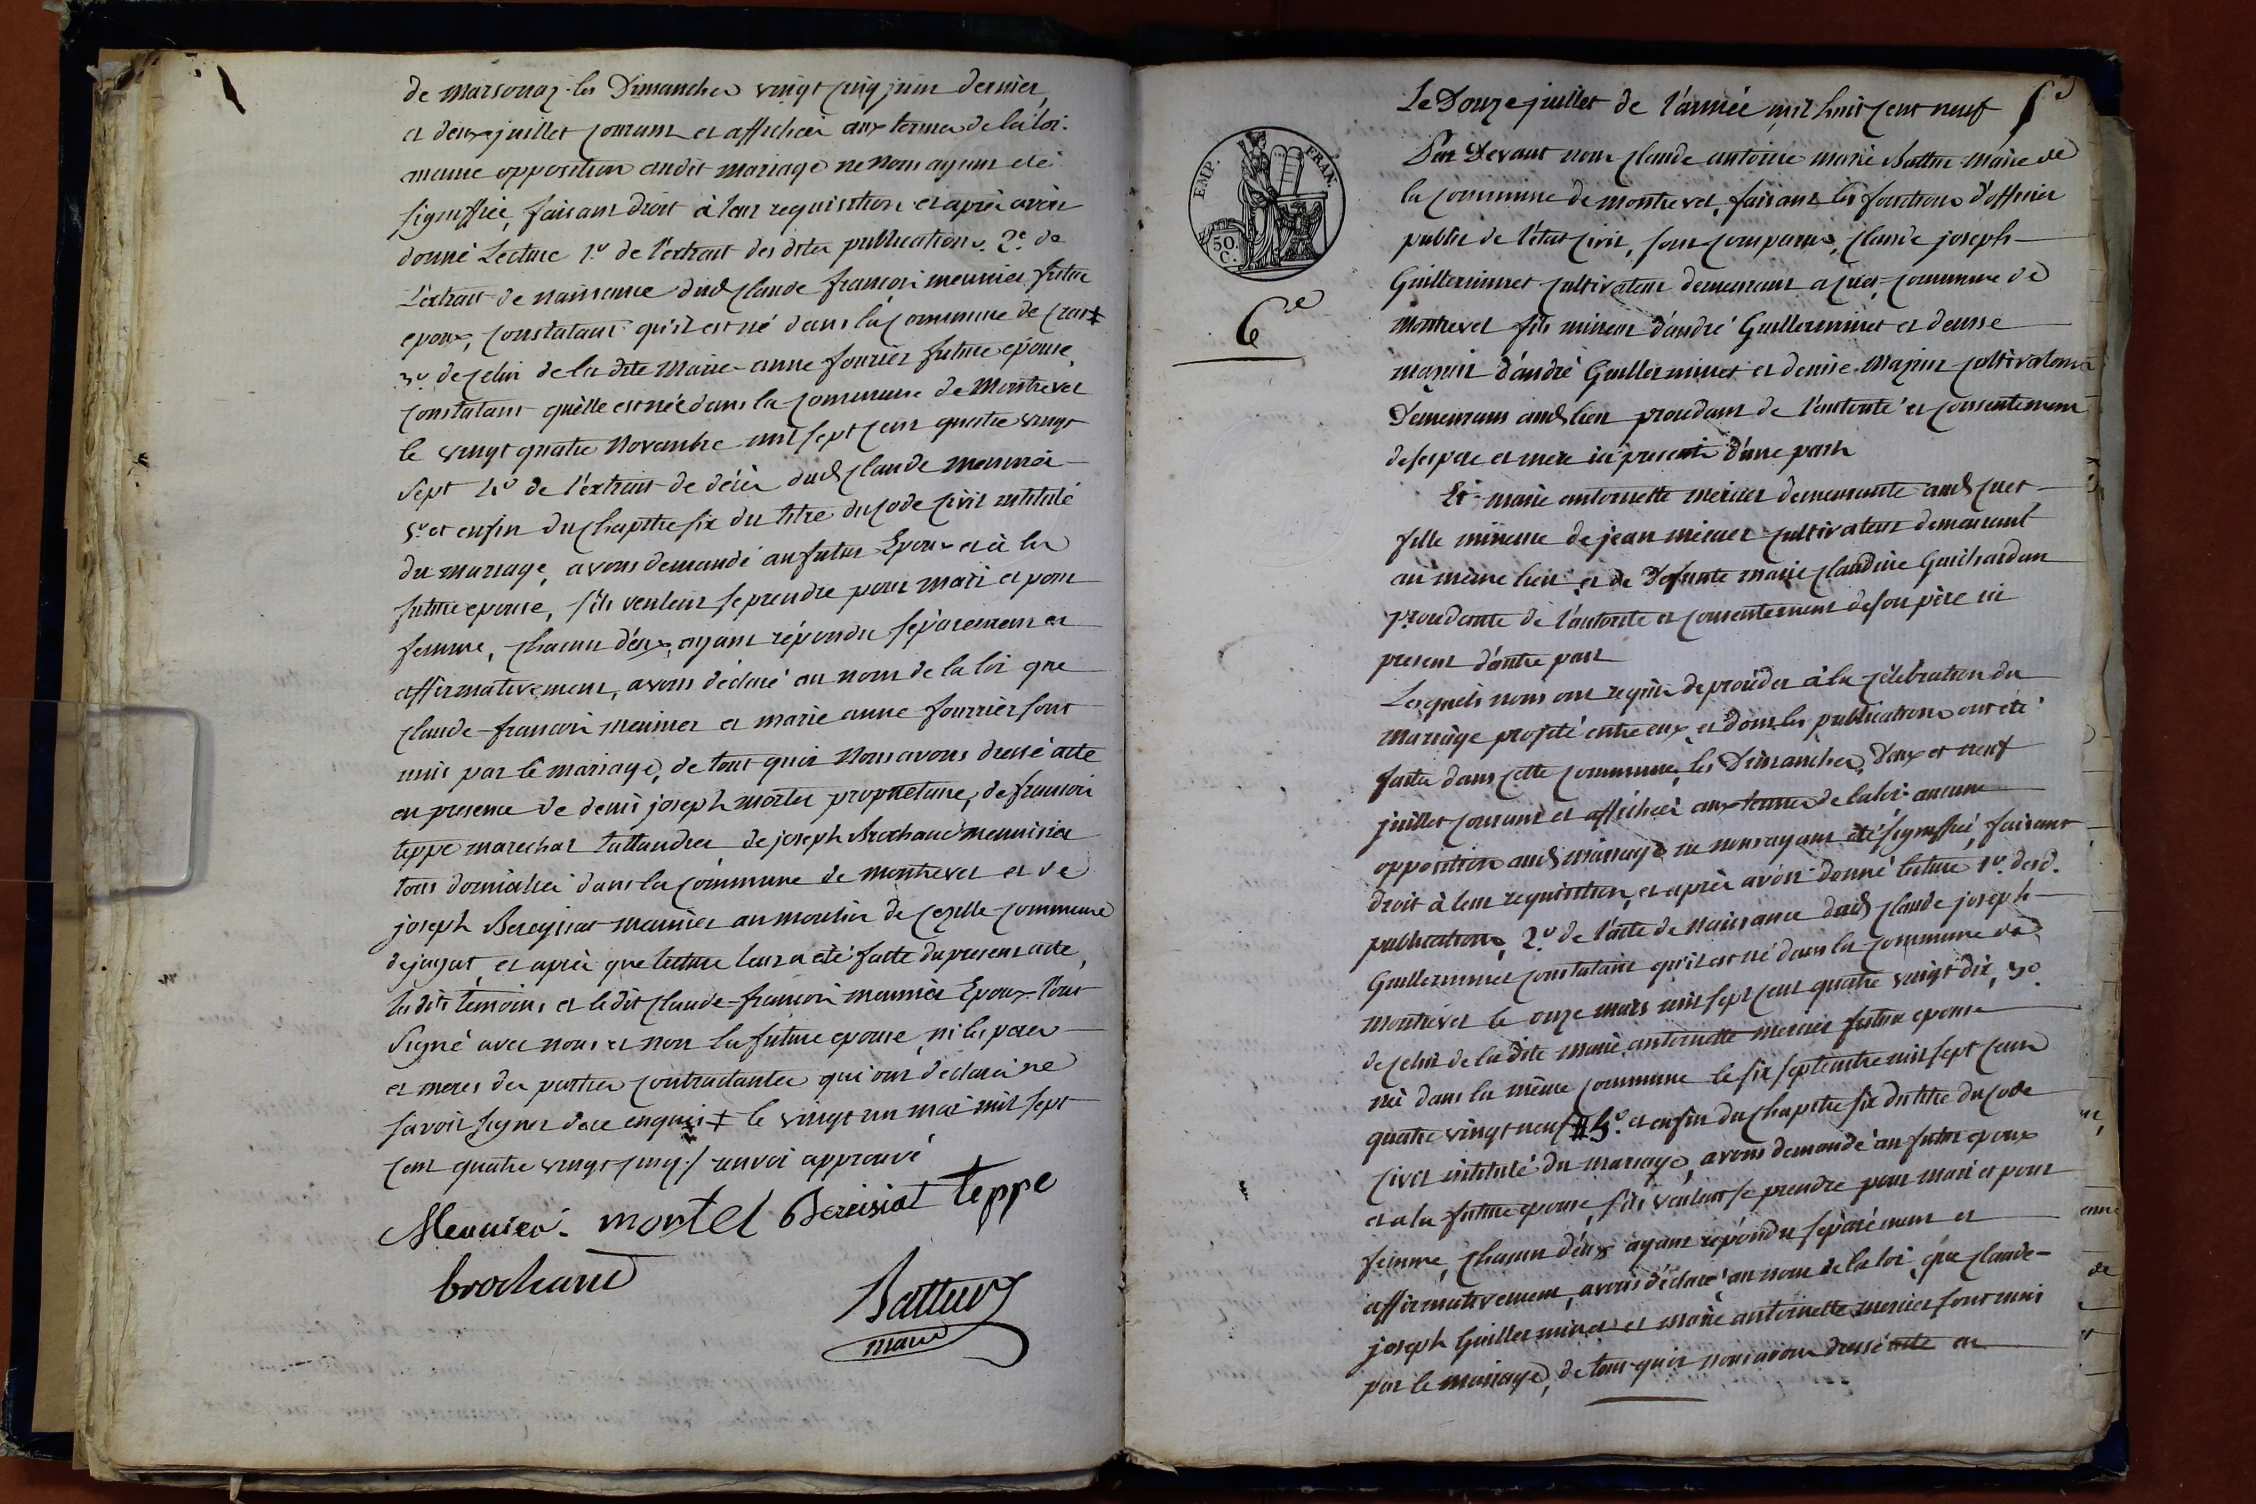 de marsonaz les Dimanches vingt cinq juin dernier
et deux juillet courant et affichées aux termes de la loi.
aucune opposition audit mariage ne nous ayant été
signiffiée, faisant droit à leur requisition et après avoir
donné Lecture 1º de l'extrait des dites publications. 2º de
L'extrait de naissance dud claude françois meunier futur
epoux, constatant qu'il est né dans la commune de cras ‡
3º de celui de la dite Marie-anne fourrier future épouse
constatant quèlle est née dans la commune de Montrevel
le vingt quatre Novembre mil sept cent quatre vingt
sept 4º de l'extrait de décès dud claude meunier
5º et enfin du chapitre six du titre du code civil intitulé
du mariage, avons demandé au futur Epoux et à la
future epouse, s'ils veulent se prendre pour mari et pour
femme, chacun d'eux ayant répondu séparement et
affirmativement, avons déclaré au nom de la loi que
claude-françois meunier et marie anne fourrier sont
unis par le mariage, de tout quoi Nous avons dressé acte
en presence de denis joseph mortel proprietaire, de françois
teppe marechal tallandier de joseph Brochand menuisier
tous domiciliés dans la commune de montrevel et de
joseph Bereyziat meunier au moulin de cezille commune
de jayat, et après que lecture leur a été faite du present acte,
les dits témoins et le dit claude-françois meunier Epoux l'ont
signé avec nous et non la future epouse, ni les peres
et meres des parties contractantes qui ont déclaré ne
savoir signer de ce enquis ‡ le vingt un mai mil sept
cent quatre vingt cinq ./ renvoi approuvé
Meunier. mortel Bereisiat teppe
brochand
Battur
maire
Le Douze juillet de l'année mil huit cent neuf
EMP. FRAN.
50.
C.
6e
Par Devant nous claude antoine marie Battur maire de
la commune de montrevel, faisant les fonctions d'officier
public de l'état civil, sont comparus, claude joseph
Guillerminet cultivateur demeurant a cuet commune de
Montrevel fils mineur d'andré Guillerminet et denise
mazuir d'andré Guillerminet et denise Mazuir cultivateurs
Demeurans aud lieu procedant de l'autorité et consentement
de ses pere et mere ici presents d'une part
Et marie antoinette mercier demeurante aud cuet
fille mineure de jean mercier cultivateur demeurant
au même lieu et de Defunte marie claudine Guichardan
procedante de l'autorité et consentement de son père ici
present d'autre part
Lesquels nous ont requis de procéder à la célébration du
mariage projeté entre eux et dont les publications ont été
faites dans cette commune, les Dimanches, deux et neuf
juillet courant et affichées aux termes de la loi aucune
opposition aud mariage ne nous ayant été signiffiée, faisant
droit à leur requisition, et après avoir donné lecture 1º desd.
publications, 2º de l'acte de Naissance dud claude joseph
Guillerminet constatant qu'il est né dans la commune de
Montrevel le onze mars mil sept cent quatre vingt dix, 3º
de celui de la dite Marie antoinette mercier future epouse
née dans la même commune le six septembre mil sept cent
quatre vingt neuf # 5º et enfin du chapitre six du titre du code
civil intitulé du mariage, avons demandé au futur epoux
et a la future epouse, s'ils veulent se prendre pour mari et pour
femme, chacun d'eux ayant répondu séparément et
affirmativement, avons déclaré au nom de la loi, que claude
joseph Guillerminet et marie antoinette mercier sont unis
par le mariage, de tout quoi nous avons dressé acte en